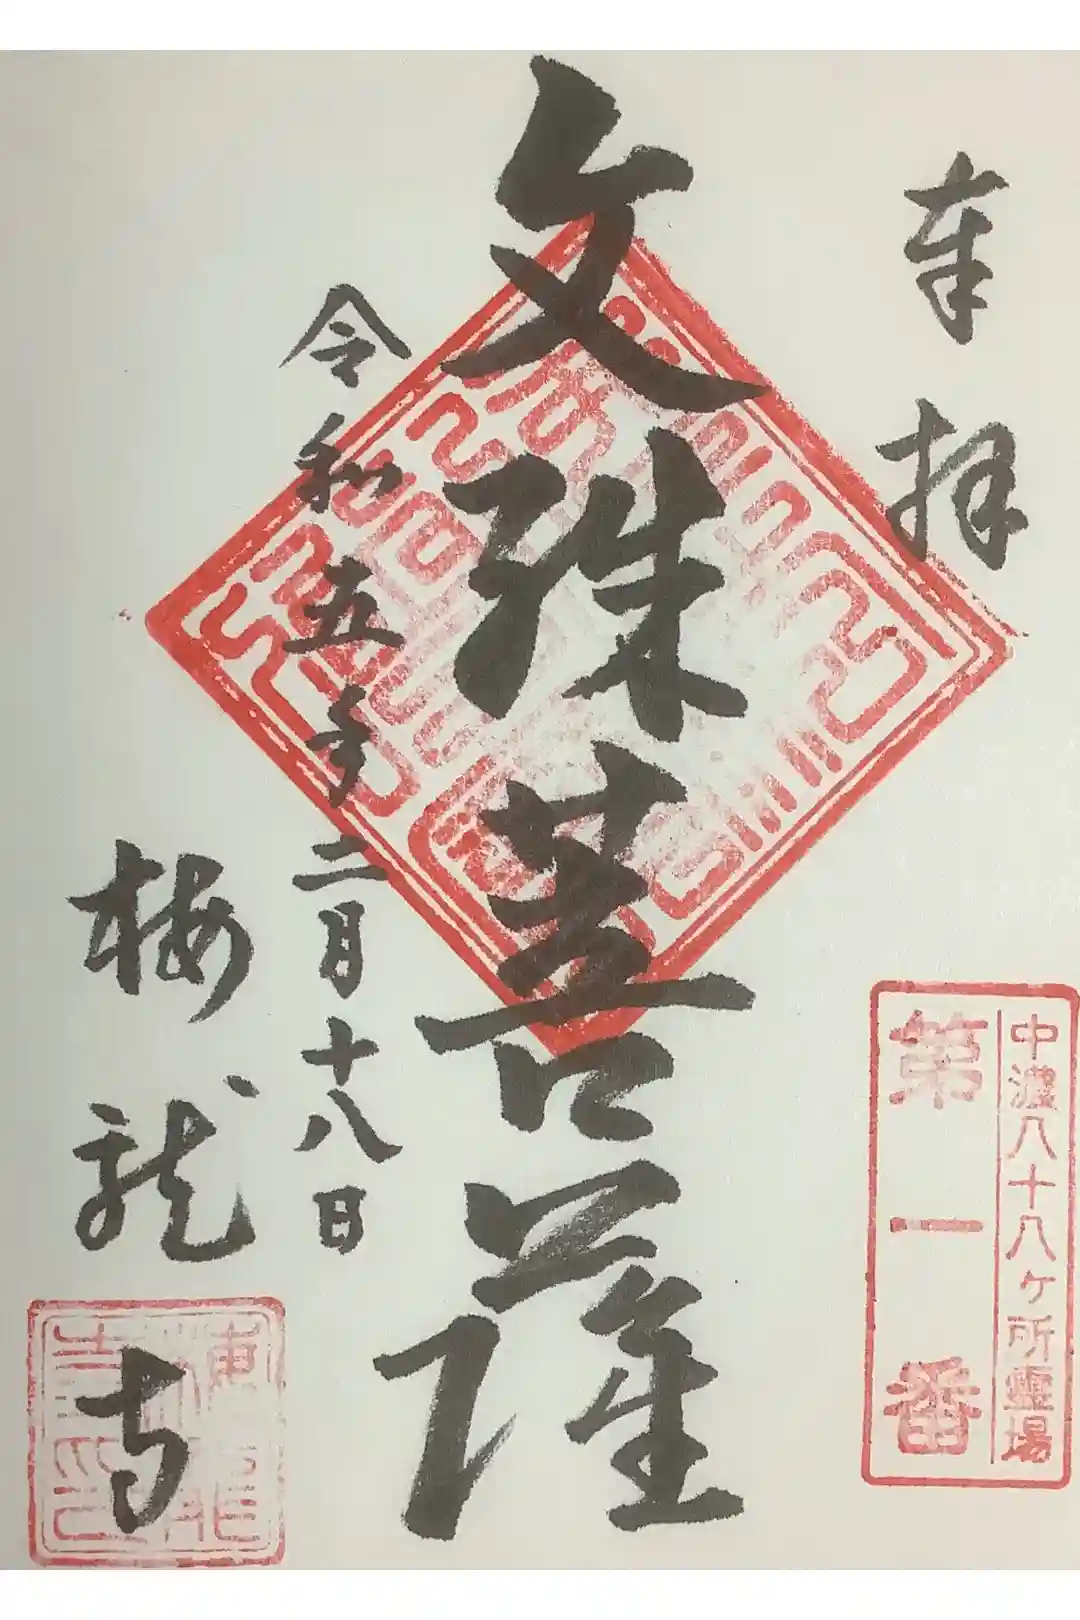 奉拝
中濃八十八ケ所霊場
第一番
文殊菩薩
令和五年二月十八日
梅龍寺